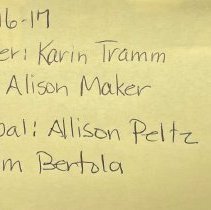 16-17
er: Karin Tramm
Alison Maker
pal: Allison Peltz
m Bertola